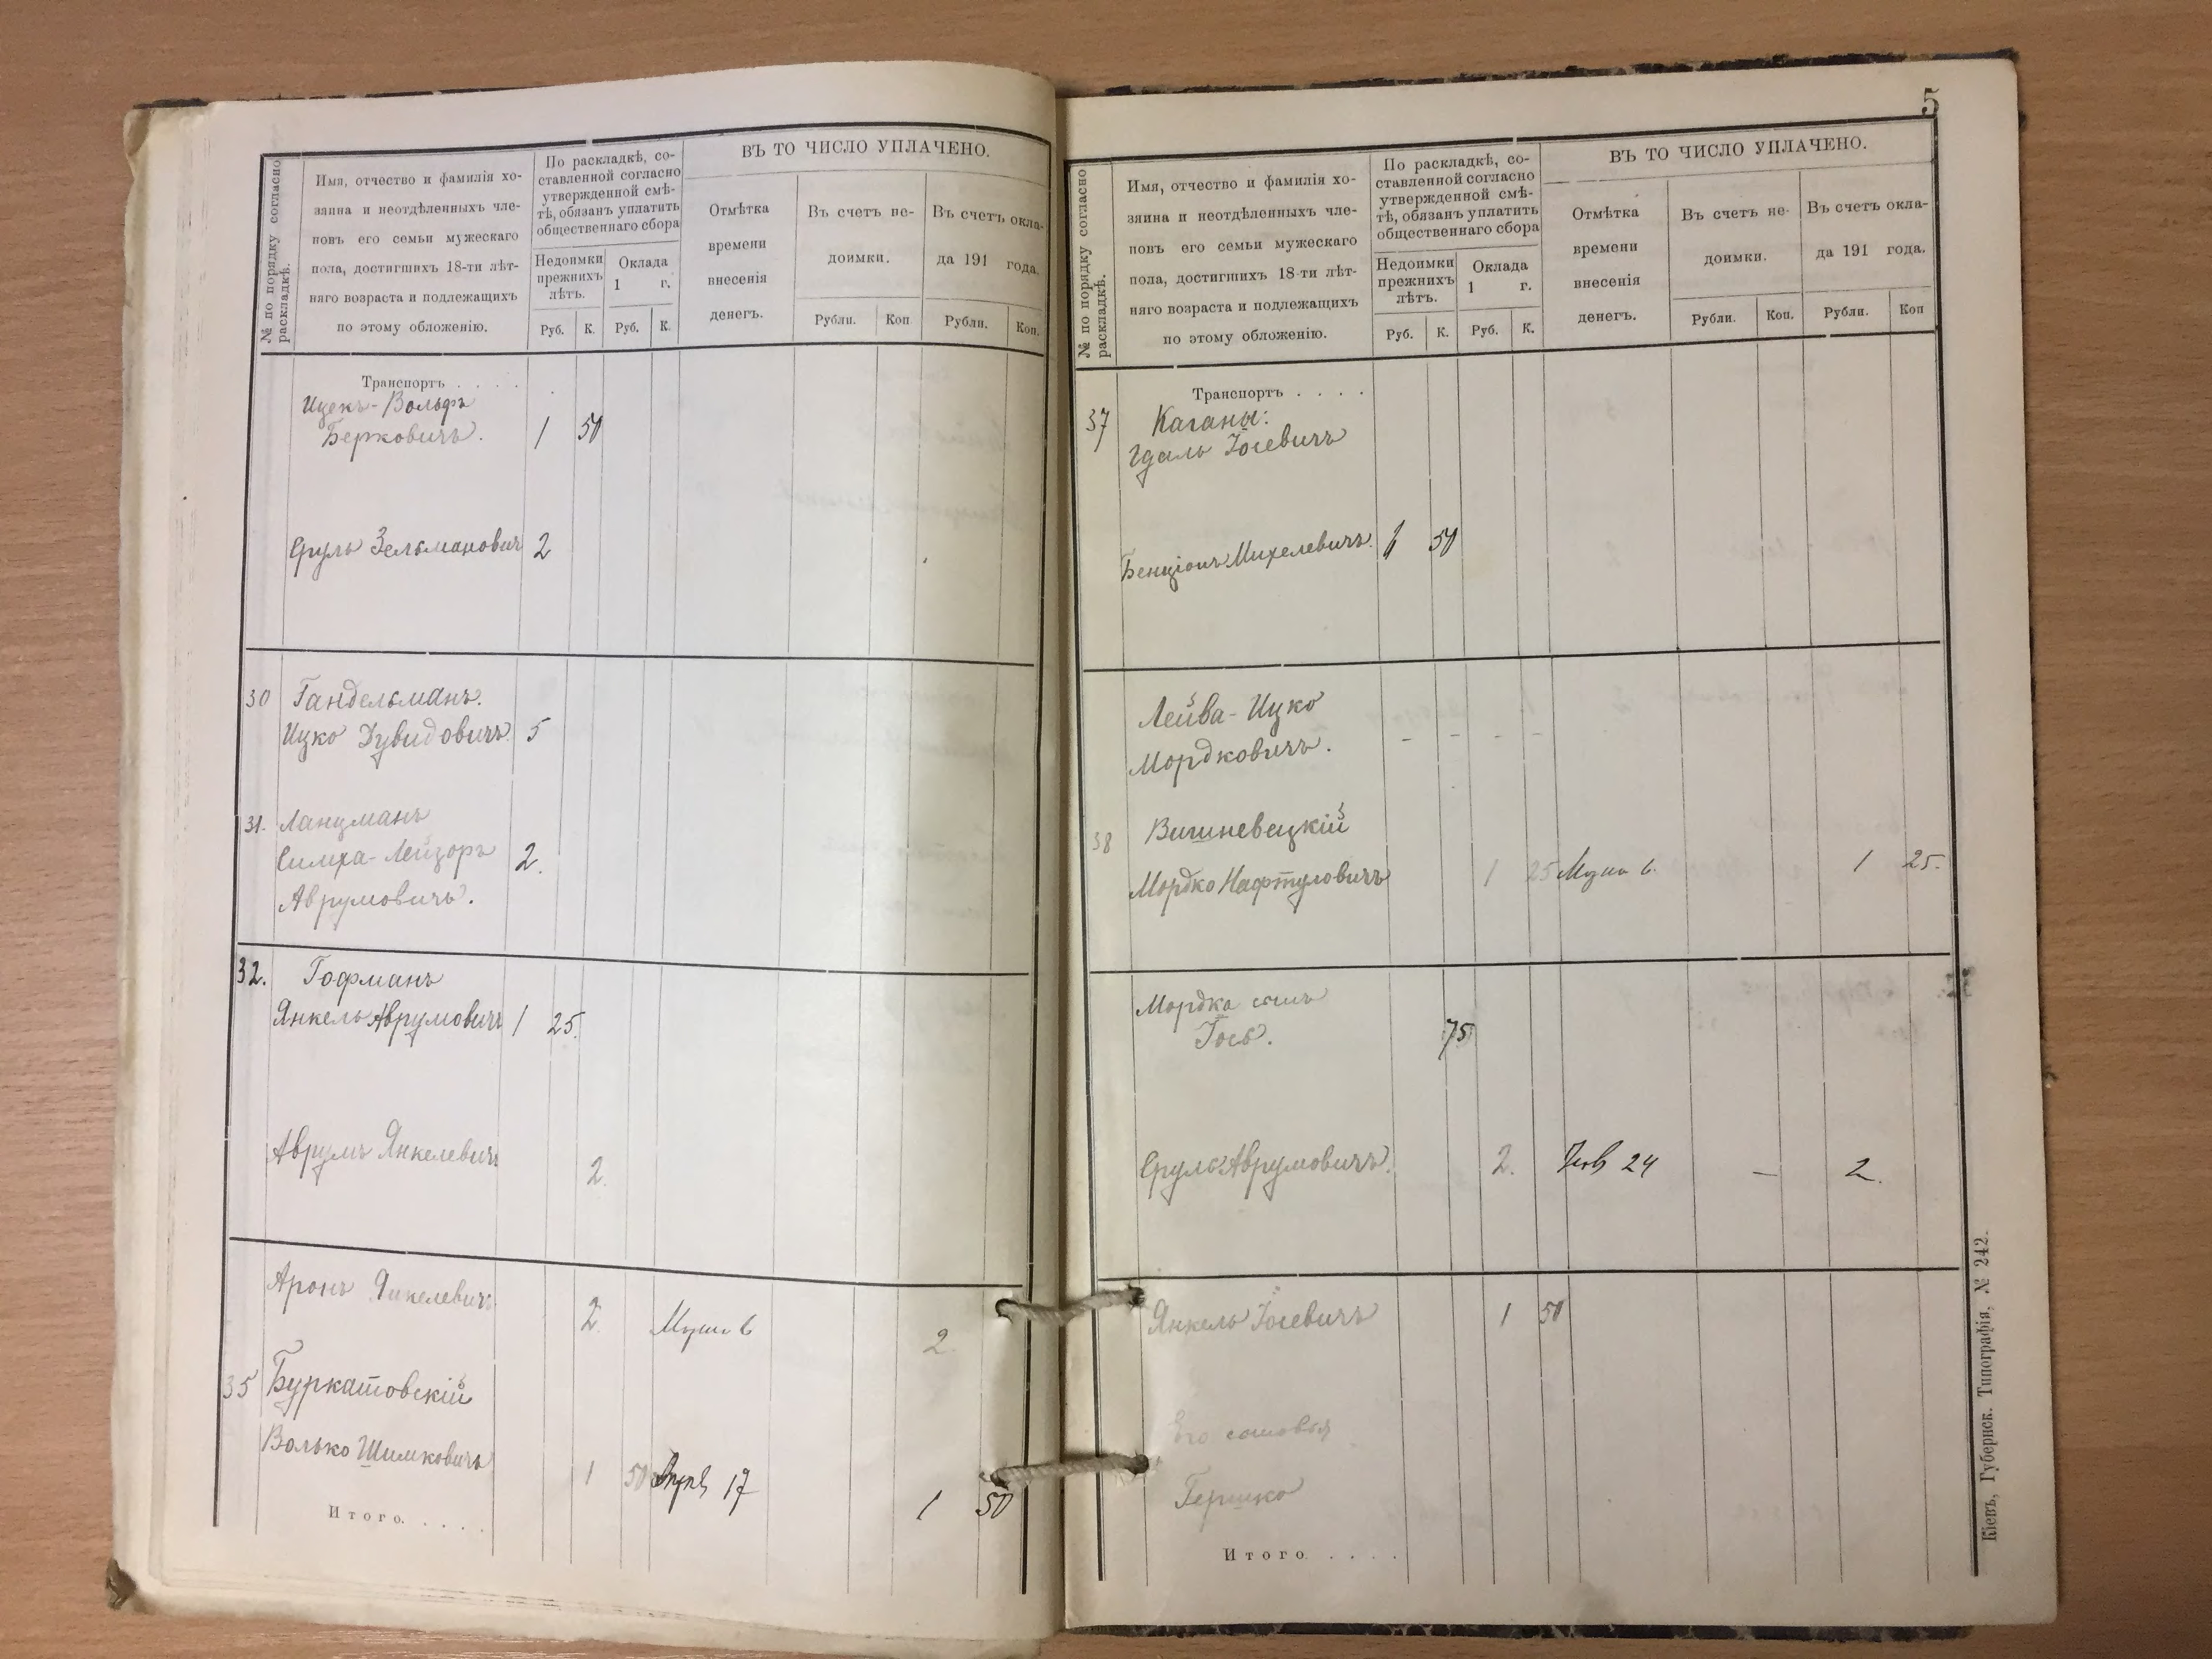 № по порядку согласно раскладкѣ.
Имя, отчество и фамилія хо-
зяина и неотдѣленныхъ чле-
новъ его семьи мужескаго
пола, достигшихъ 18-ти лѣт-
няго возраста и подлежащихъ
по этому обложенію.
По раскладкѣ, со-
ставленной согласно
утвержденной смѣ-
тѣ, обязанъ уплатить
общественнаго сбора
Недоимки
прежнихъ
лѣтъ.
Оклада
1 г.
Руб. К. Руб. К.
ВЪ ТО ЧИСЛО УПЛАЧЕНО.
Отмѣтка
времени
внесенія
денегъ.
Въ счетъ не-
доимки.
Въ счетъ окла-
да 191 года.
Рубли. Коп Рубли. Коп.
Транспортъ . . . .
Ицекъ-Вольфъ
Берковичъ. 1 50
Сруль Зельманович 2
30 Гандельманъ.
Ицко Дувидовичъ 5
31. Ланцманъ
Симха-Лейзоръ 2.
Аврумовичъ.
32. Гофманъ
Янкель Аврумовичъ 1 25.
Аврумъ Янкелевичъ 2.
Аронъ Янкелевичъ 2 6 2.
35 Буркатовскій
Волько Шимковичъ 1 50 17 1 50
Итого. . . . .
5
№ по порядку согласно раскладкѣ.
Имя, отчество и фамилія хо-
зяина и неотдѣленныхъ чле-
новъ его семьи мужескаго
пола, достигшихъ 18-ти лѣт-
няго возраста и подлежащихъ
по этому обложенію.
По раскладкѣ, со-
ставленной согласно
утвержденной смѣ-
тѣ, обязанъ уплатить
общественнаго сбора
Недоимки
прежнихъ
лѣтъ.
Оклада
1 г.
Руб. К. Руб. К.
ВЪ ТО ЧИСЛО УПЛАЧЕНО.
Отмѣтка
времени
внесенія
денегъ.
Въ счетъ не-
доимки.
Въ счетъ окла-
да 191 года.
Рубли. Коп. Рубли. Коп
Транспортъ . . . .
37 Каганы:
Гдаль Іосевичъ
Бенціонъ Михелевичъ. 1 50
Лейва-Ицко
Мордковичъ. - - - -
38 Вишневецкій
Мордко Нафтуловичъ 1 25 6. 1 25.
Мордка сынъ
Іось. 75
Сруль Аврумовичъ. 2. 24 — 2.
Янкель Іосевичъ 1 50
Его сыновья
Гершко
Итого . . . .
Кіевъ, Губернск. Типографія, № 242.